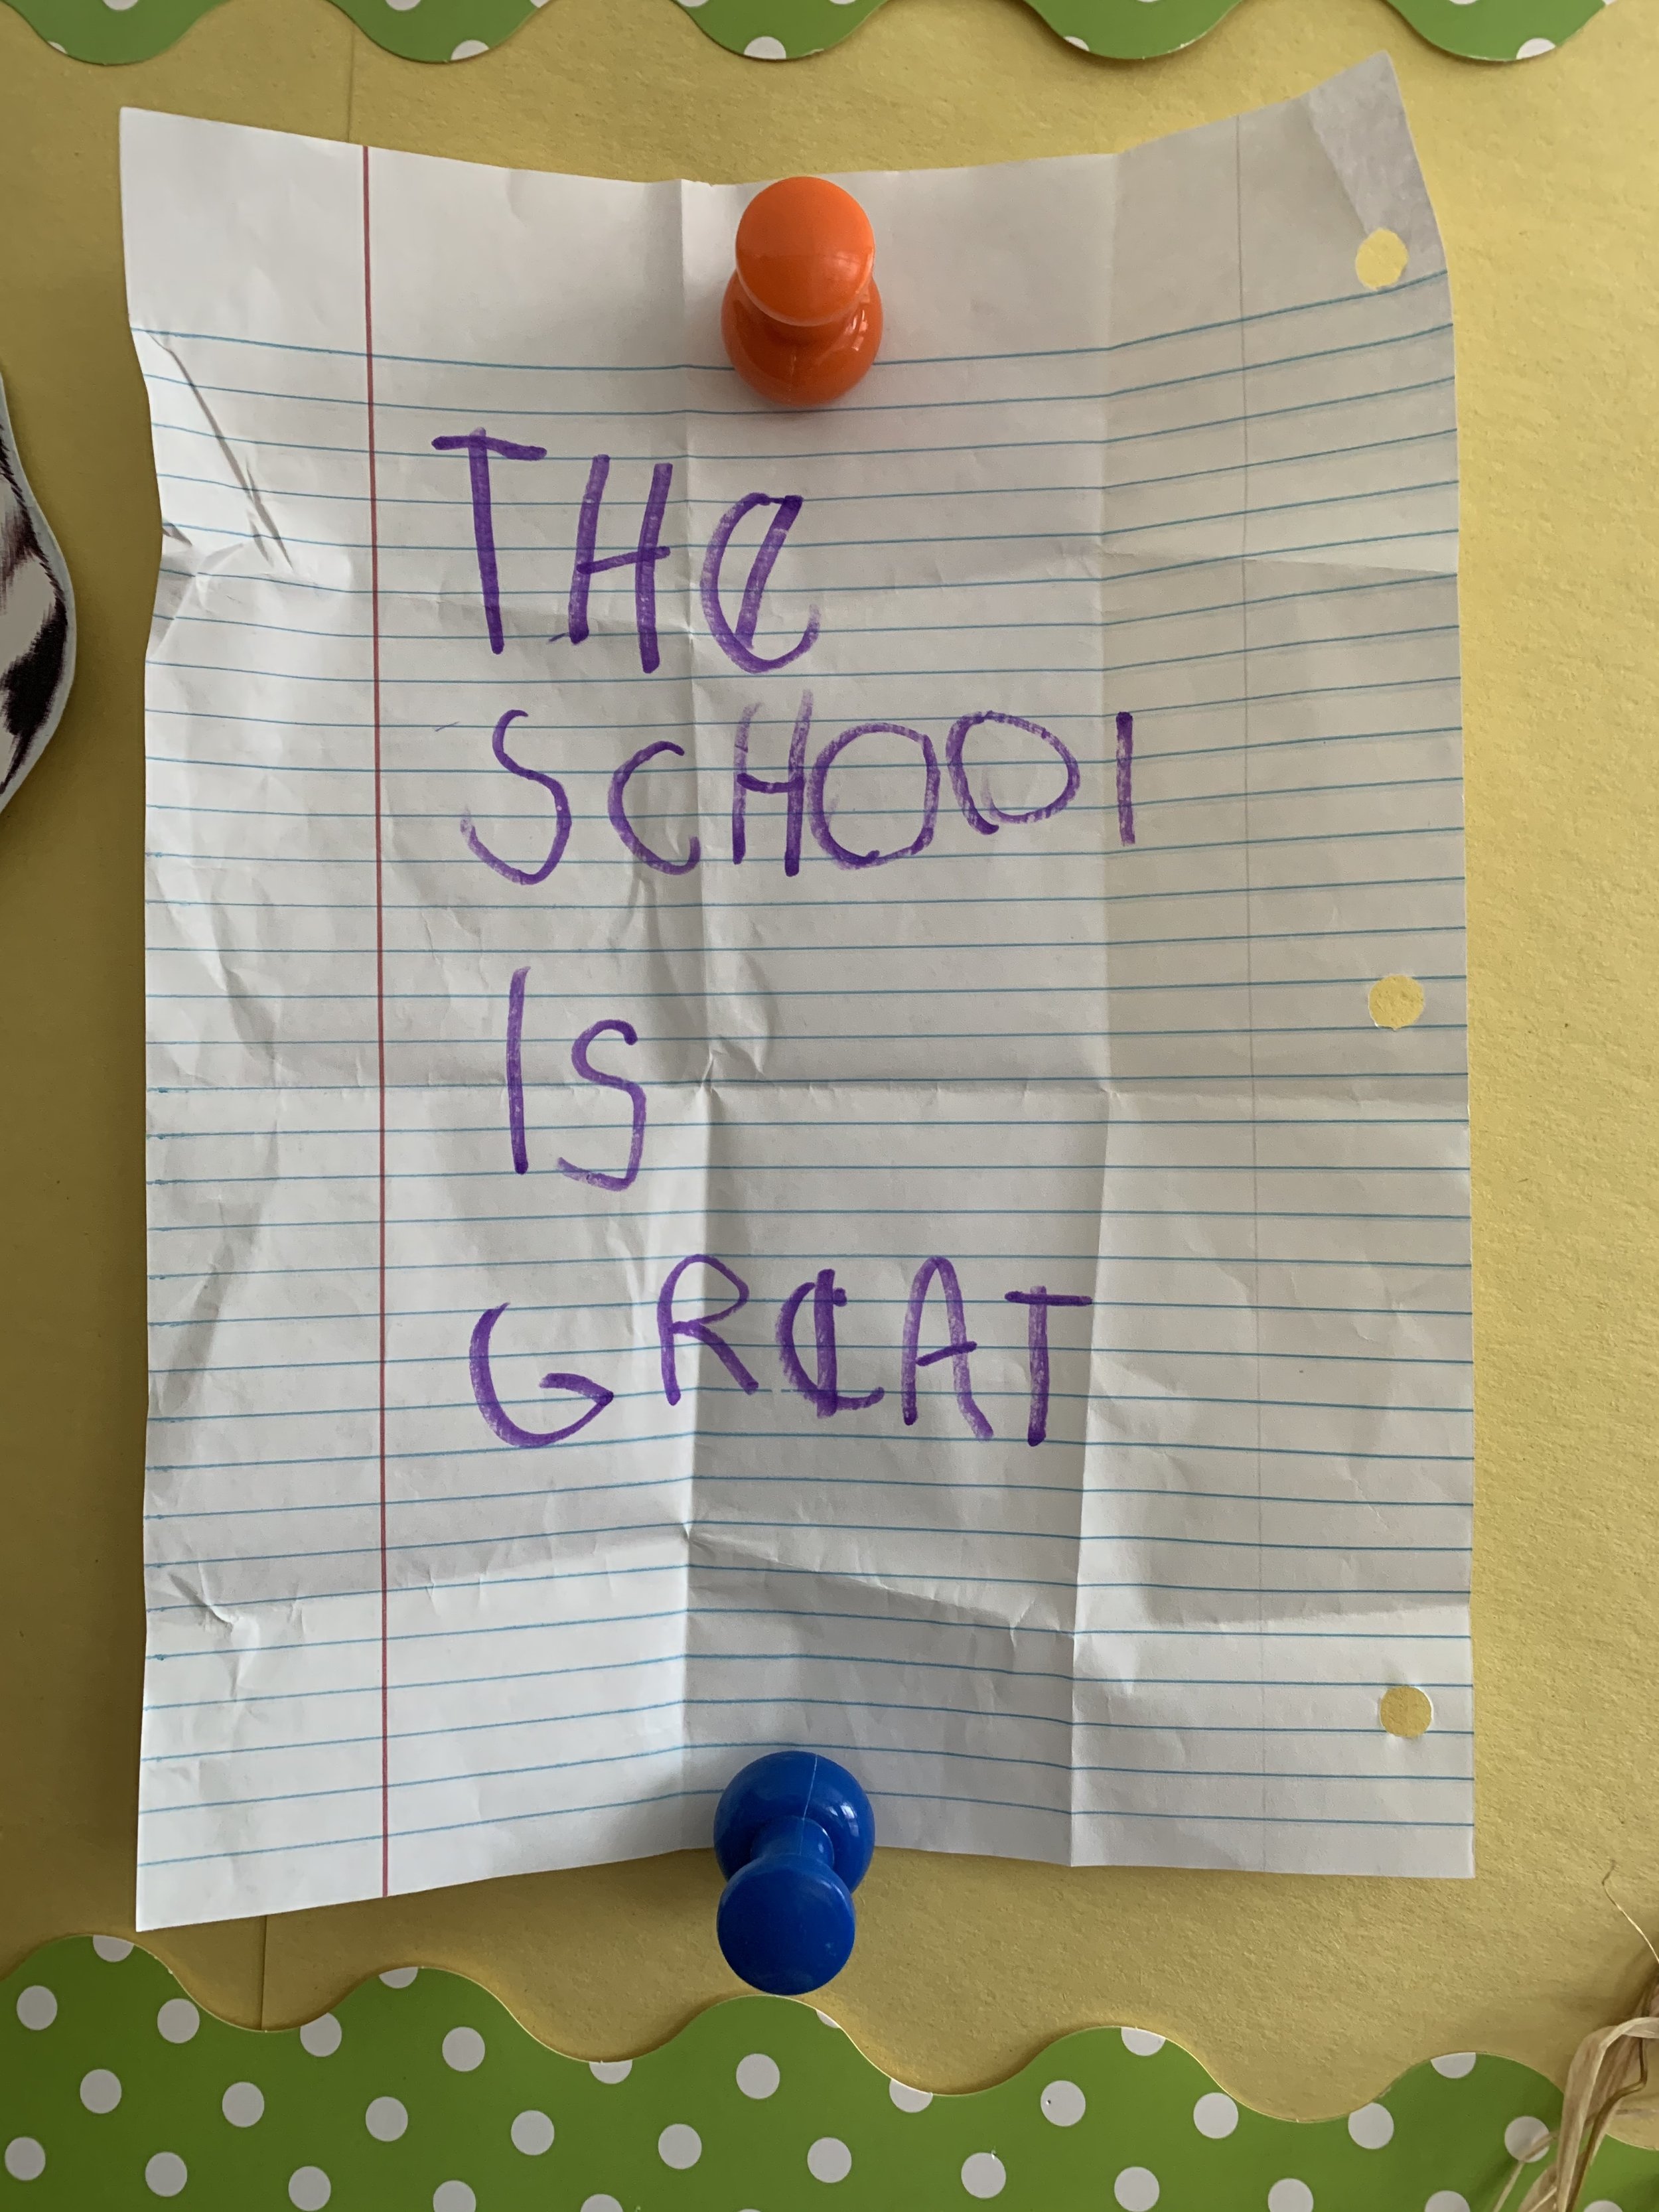 THE
SCHOOl
IS
GREAT